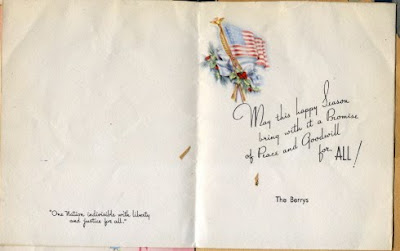 "One Nation indivisible with liberty
and justice for all."
May this happy Season
bring with it a Promise
of Peace and Goodwill
for ALL!
The Berrys